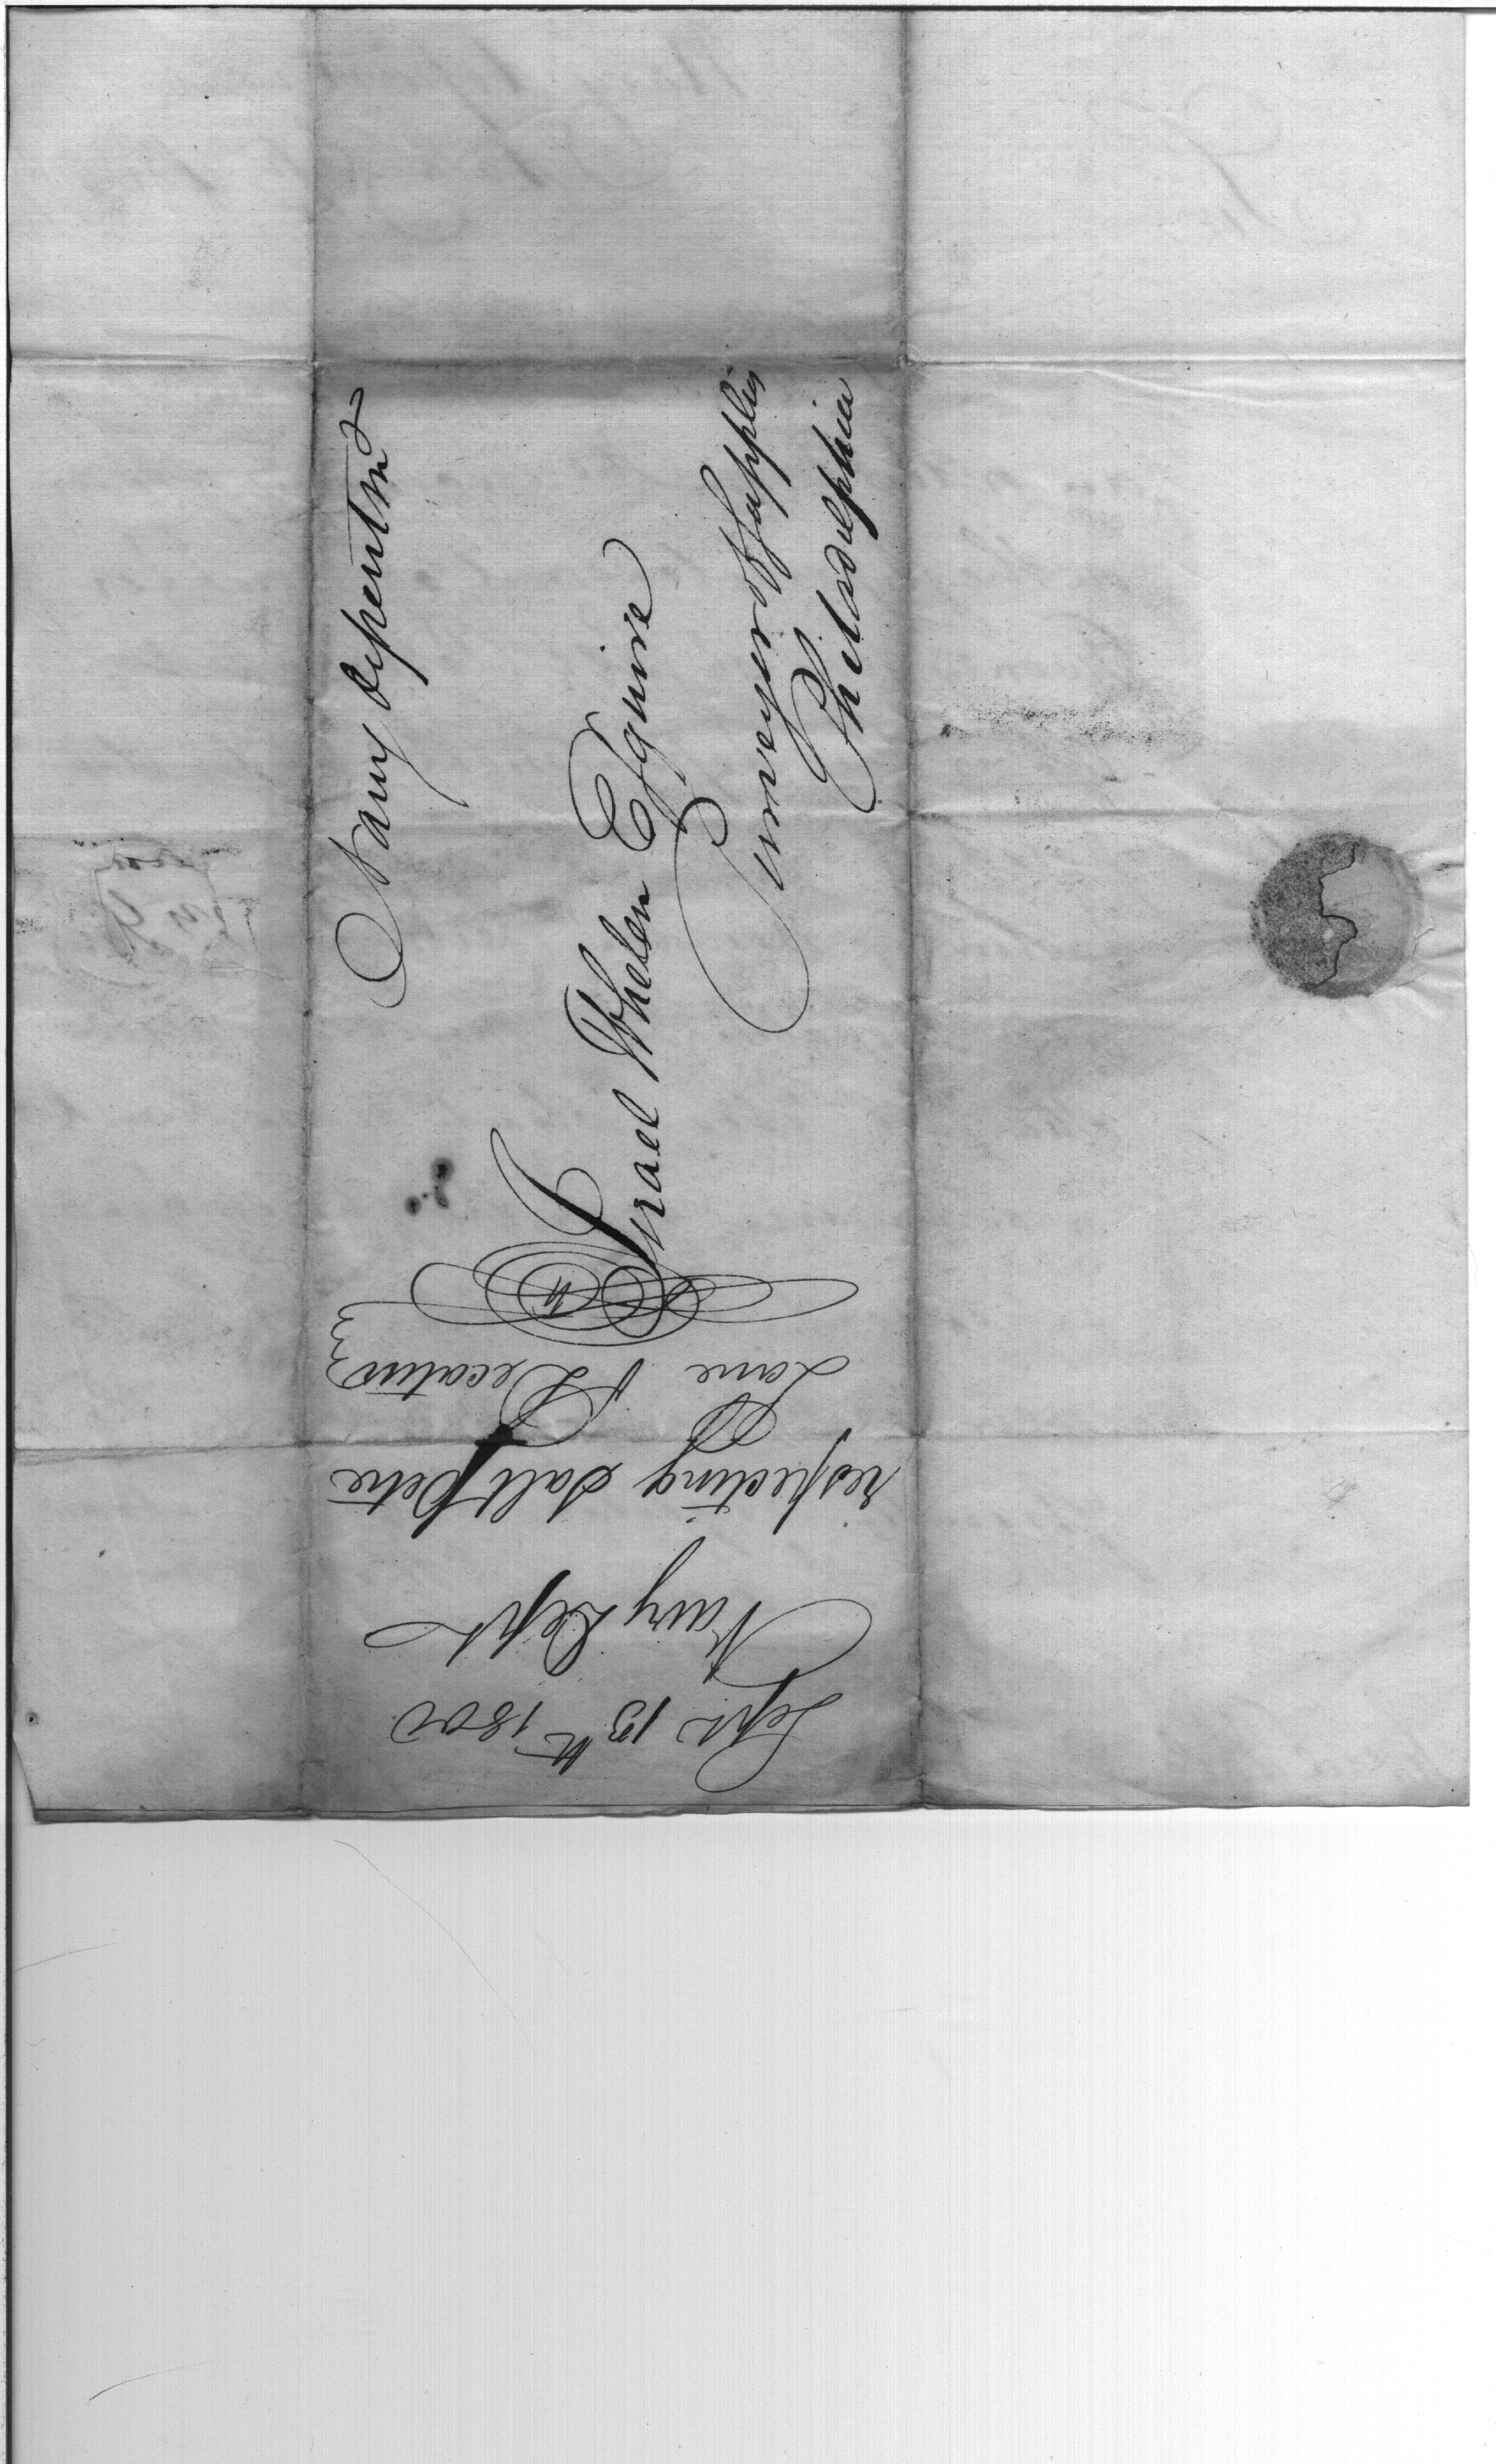 Navy Department
Israel Whelen Esquire
Purveyor of Supplies
Philadelphia
Sept 13th 1800
Navy Dept
respecting Salt Petre
Lane & Decatur